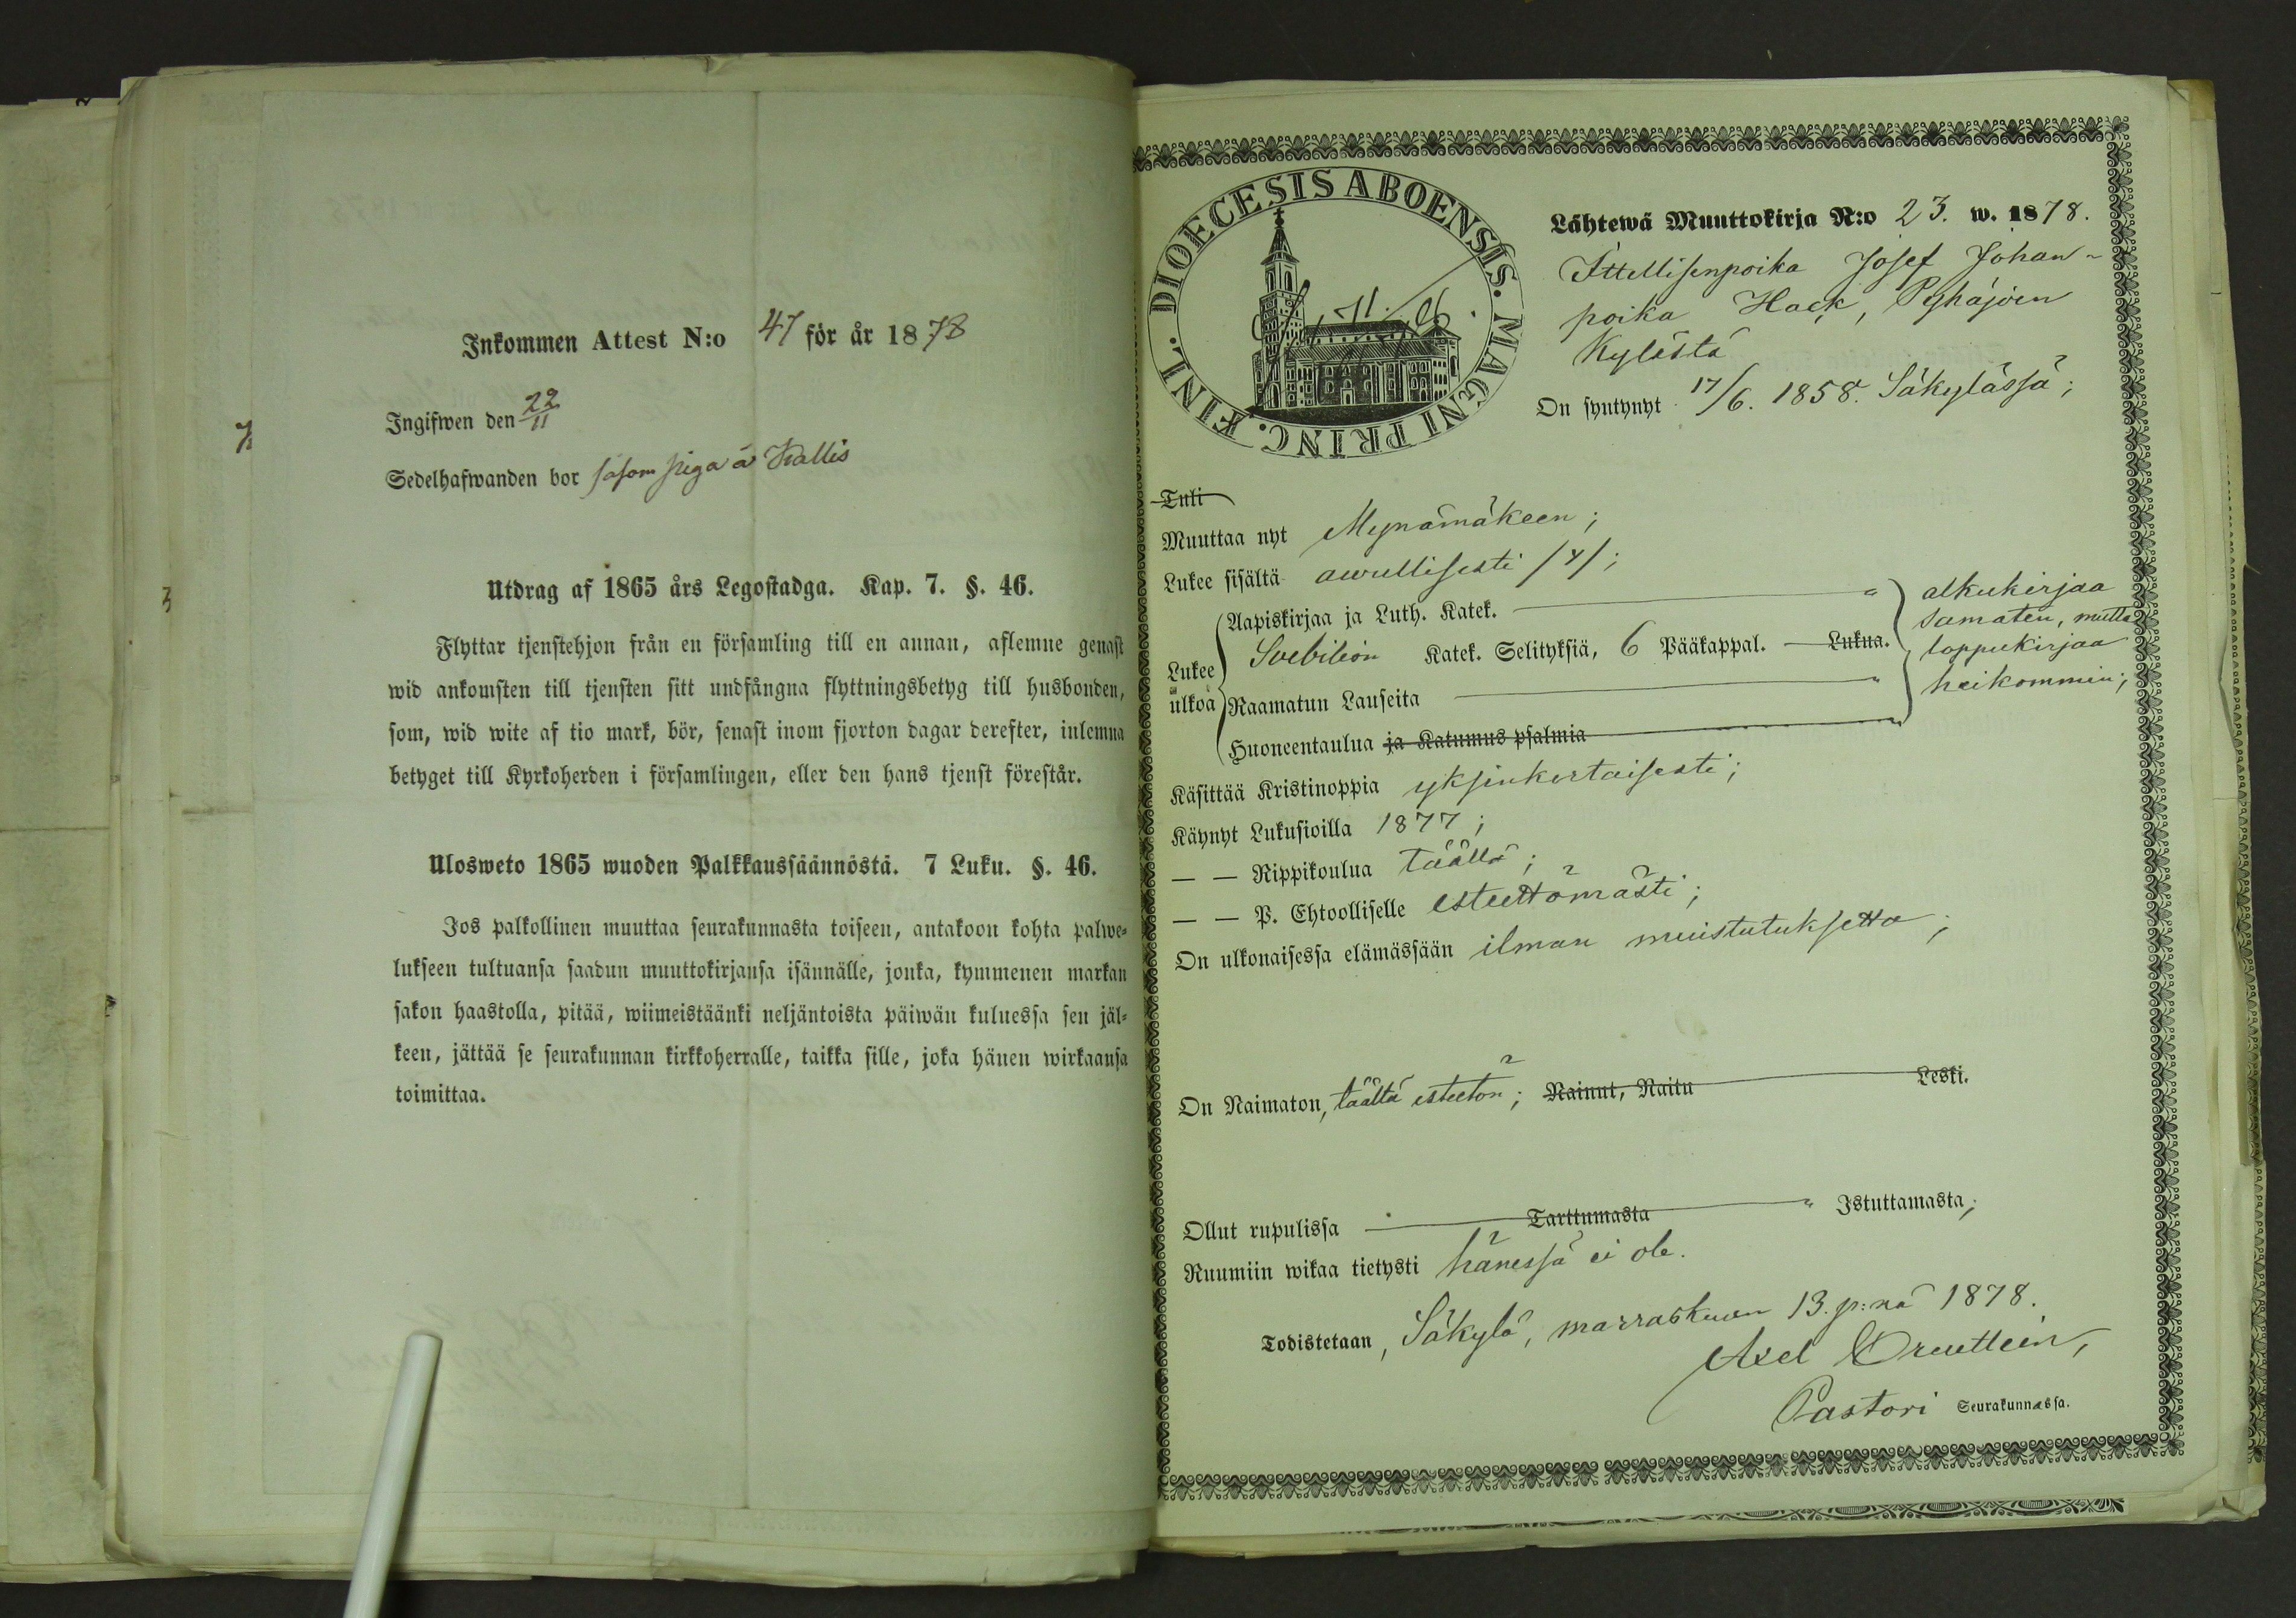 Inkommen Attest N:o 47 för år 1878
Ingifwen den 22/11
Sedelhafwanden bor såsom piga å Kallis
Utdrag af 1865 års Legostadga. Kap. 7. §. 46.
Flyttar tjenstehjon från en församling till en annan, aflemne genast
wid ankomsten till tjensten sitt undfångna flyttningsbetyg till husbonden,
som, wid wite af tio mark, bör, senast inom fjorton dagar derefter, inlemna
betyget till Kyrkoherden i församlingen, eller den hans tjenst förestår.
Ulosweto 1865 wuoden Palkkaussäännöstä. 7 Luku. §. 46.
Jos palkollinen muuttaa seurakunnasta toiseen, antakoon kohta palwe-
lukseen tultuansa saadun muuttokirjansa isännälle, jonka, kymmenen markan
sakon haastolla, pitää, wiimeistäänki neljäntoista päiwän kuluessa sen jäl-
keen, jättää se seurakunnan kirkkoherralle, taikka sille, joka hänen wirkaansa
toimittaa.
DIOECESIS ABOENSIS. MAGNI PRINC. FINL.
Lähtewä Muuttokirja N:o 23. w. 1878.
Ittellisenpoika Josef Johan-
poika Hack, Pyhäjoen
Kylästä
On syntynyt 17/6. 1858. Säkylässä;
Tuli
Muuttaa nyt Mynämäkeen;
Lukee sisältä awullisesti /4/;
Lukee ulkoa
Aapiskirjaa ja Luth. Katek. "
Svebilion Katek. Selityksiä, 6 Pääkappal. Lukua.
Raamatun Lauseita "
Huoneentaulua ja Katumus psalmia "
alkukirjaa
samaten, mutta
loppukirjaa
heikommin;
Käsittää Kristinoppia yksinkertaisesti;
Käynyt Lukusioilla 1877;
— — Rippikoulua täällä;
— — P. Ehtoolliselle esteettömästi;
On ulkonaisessa elämässään ilman muistutuksetta;
On Naimaton, täältä esteetön; Nainut, Naitu Leski.
Ollut rupulissa Tarttumasta " Istuttamasta;
Ruumiin wikaa tietysti hänessä ei ole.
Todistetaan, Säkylä, marraskuun 13. p:nä 1878.
Axel
Pastori Seurakunnassa.